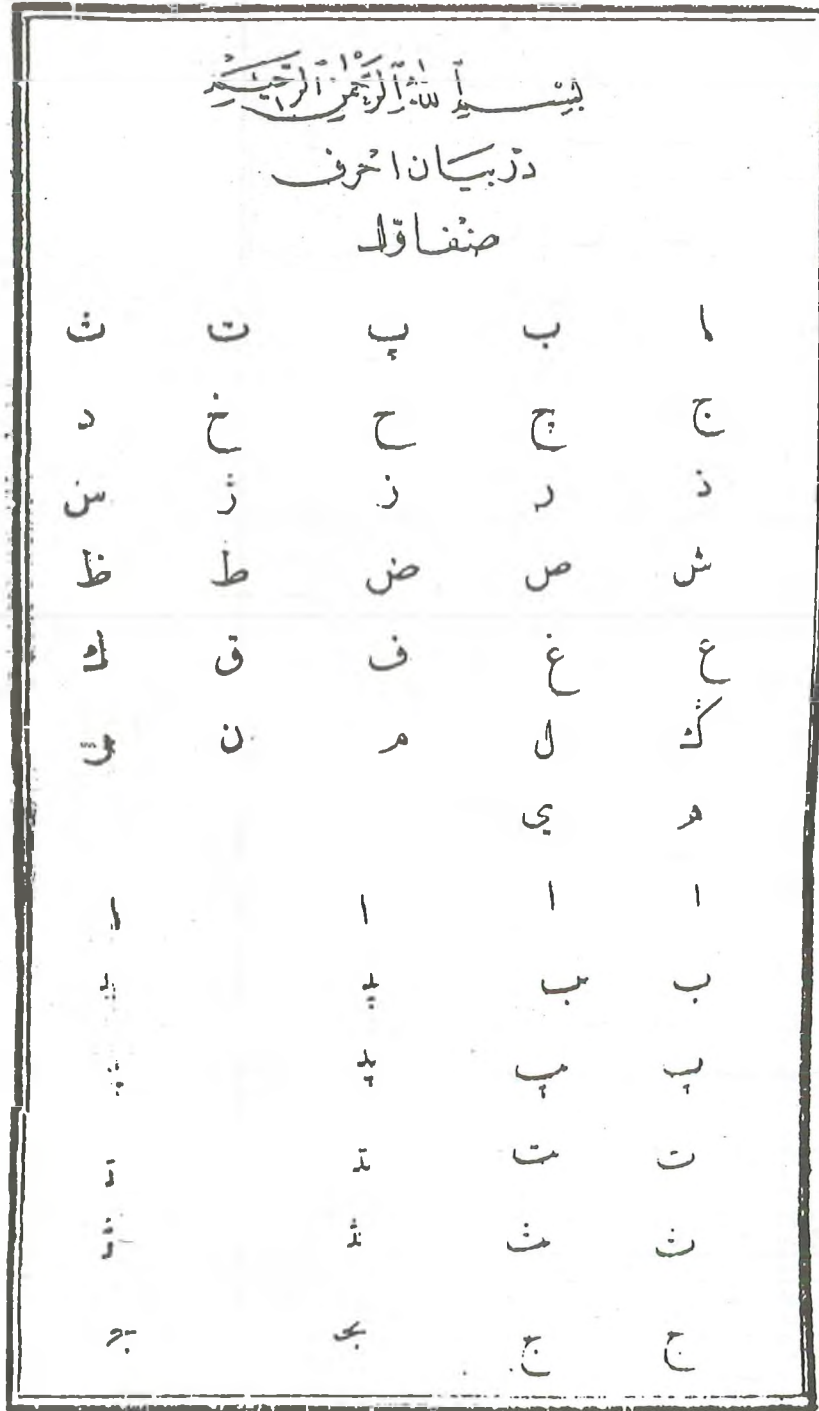 بِسْمِ اللهِ الرَّحْمٰنِ الرَّحِيْمِ
در بيان احرف
صنف اوّل
ا ب پ ت ث
ج چ ح خ د
ذ ر ز ژ س
ش ص ض ط ظ
ع غ ف ق ك
ݣ ل م ن و
ه ي
ا ا ا ا
ب ب بـ ـبـ
پ پ پـ ـپـ
ت ت تـ ـتـ
ث ث ثـ ـثـ
ج ج جـ ـجـ